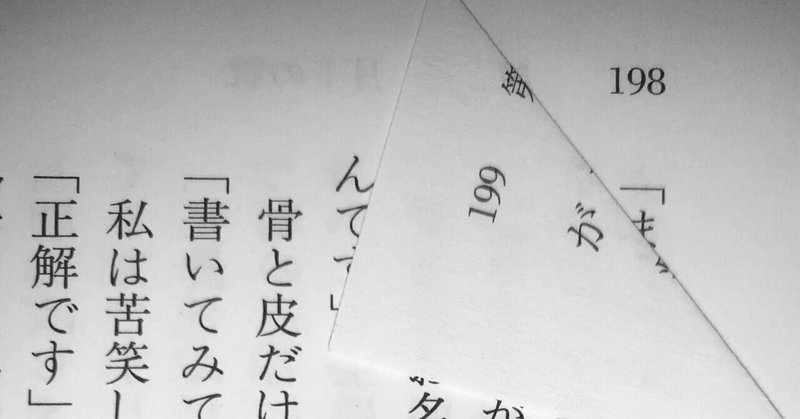 198
199
が
が
名
んで
骨と皮だけ
「書いてみて
私は苦笑し
「正解です」